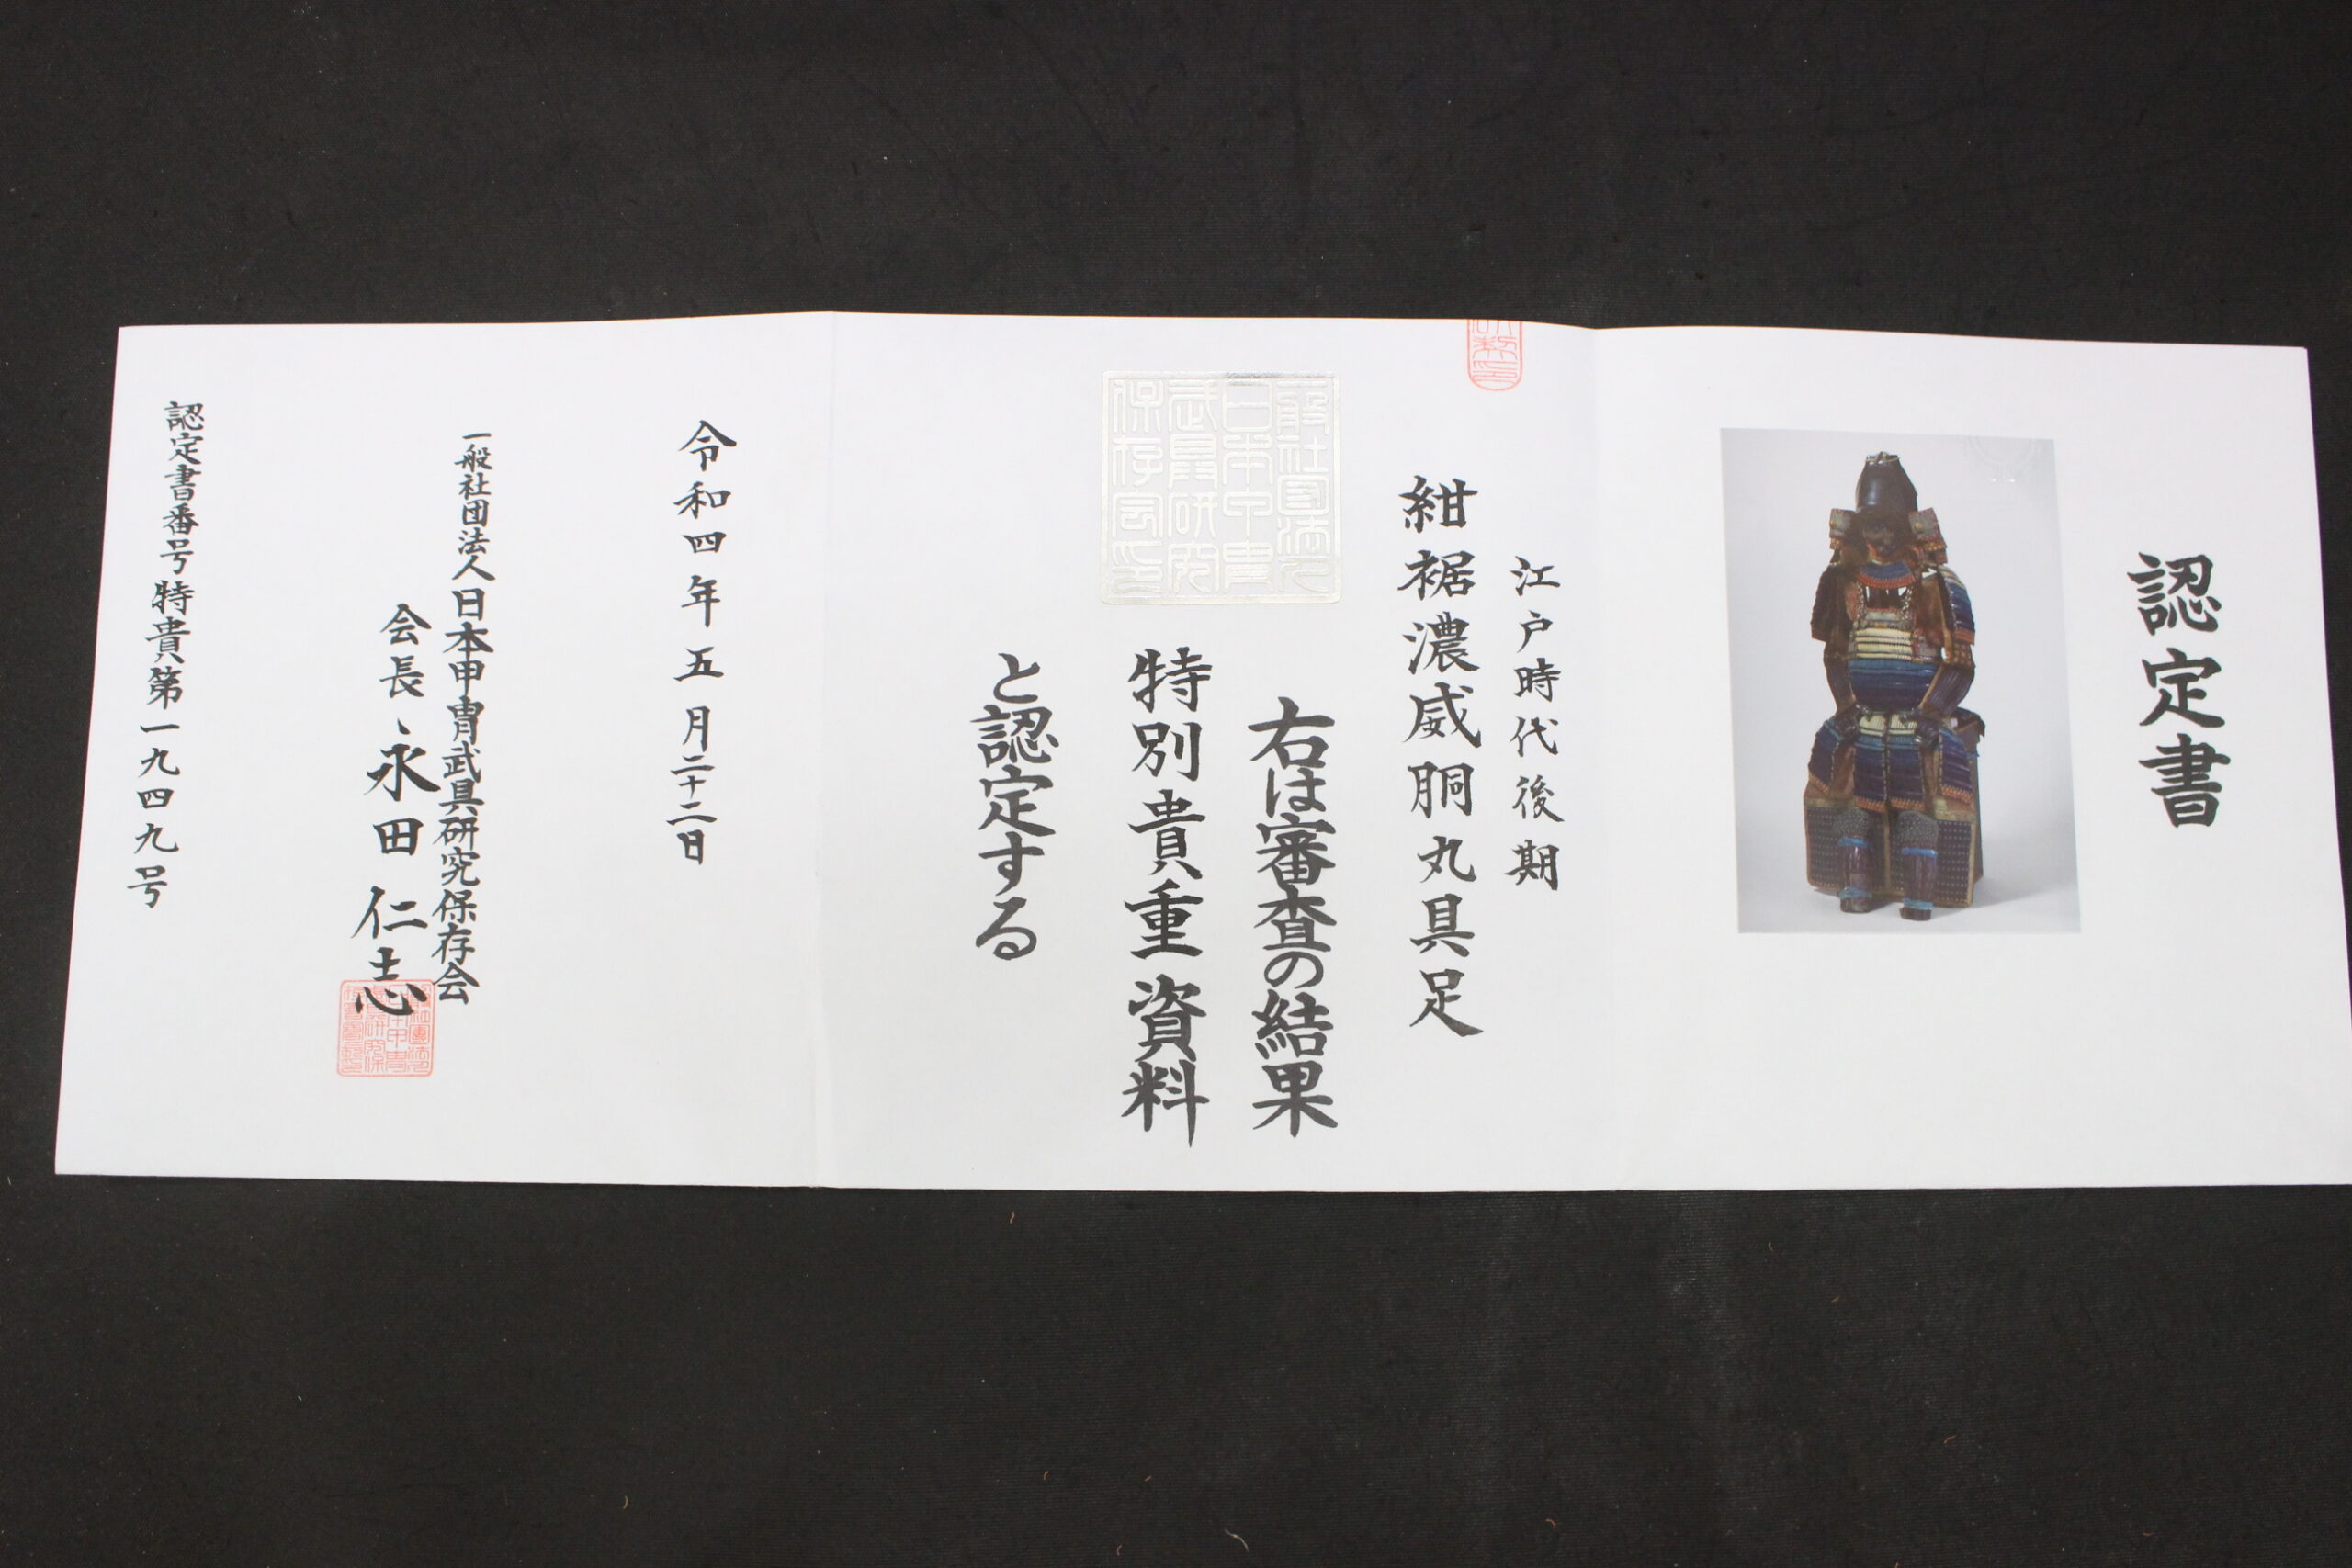 認定書
江戸時代後期
紺裾濃威胴丸具足
右は審査の結果
特別貴重資料
と認定する
令和四年五月二十二日
一般社団法人日本甲冑武具研究保存会
会長、永田仁志
認定書番号特貴第一九四九号